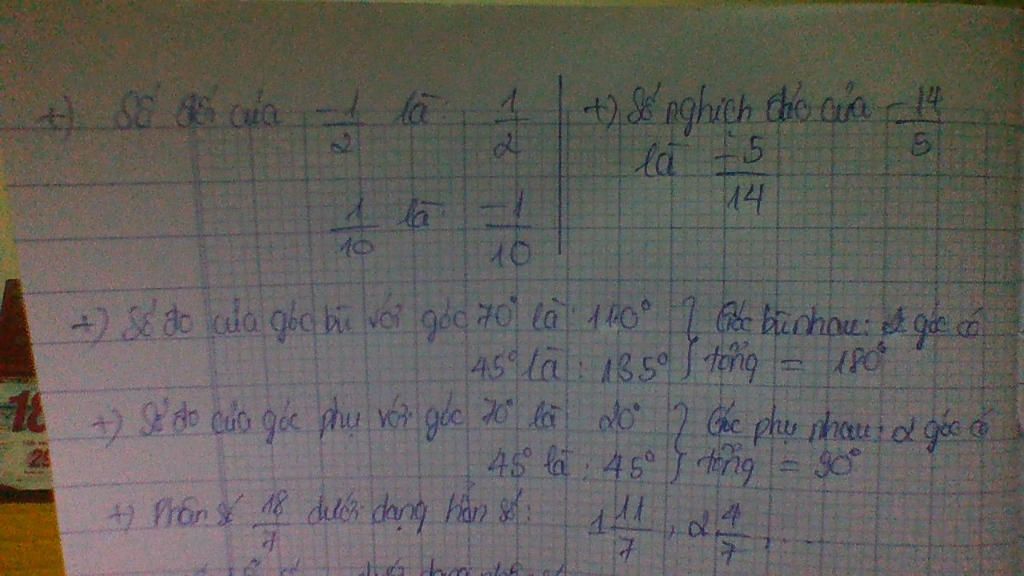 +) Số đối của -1/2 là: 1/2
1/10 là: -1/10
+) Số nghịch đảo của -14/5
là -5/14
+) Số đo của góc bù với góc 70° là: 110° } Góc bù nhau: 2 góc có
45° là: 135° } tổng = 180°
+) Số đo của góc phụ với góc 70° là 20° } Góc phụ nhau: 2 góc có
45° là: 45° } tổng = 90°
+) Phân số 18/7 dưới dạng hỗn số: 1 11/7, 2 4/7, ....
18